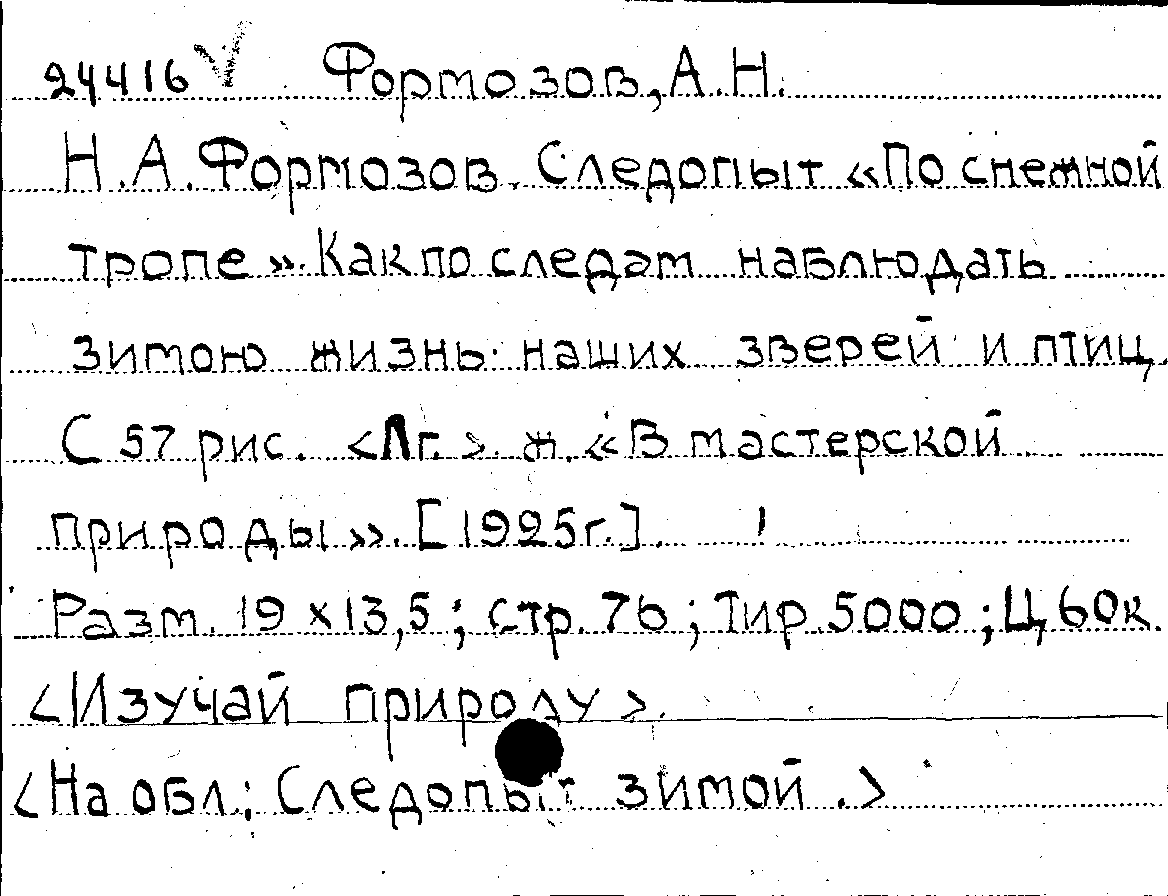 24416 Формозов, А.Н.
Н.А. Формозов. Следопыт «По снежной
тропе». Как по следам наблюдать
зимою жизнь наших зверей и птиц.
С 57 рис. <Лг.> ж. «В мастерской
природы». [1925г.].
Разм. 19 х 13,5; стр. 76; Тир. 5000; Ц. 60к.
<Изучай природу>.
<На обл.: Следопыт зимой.>